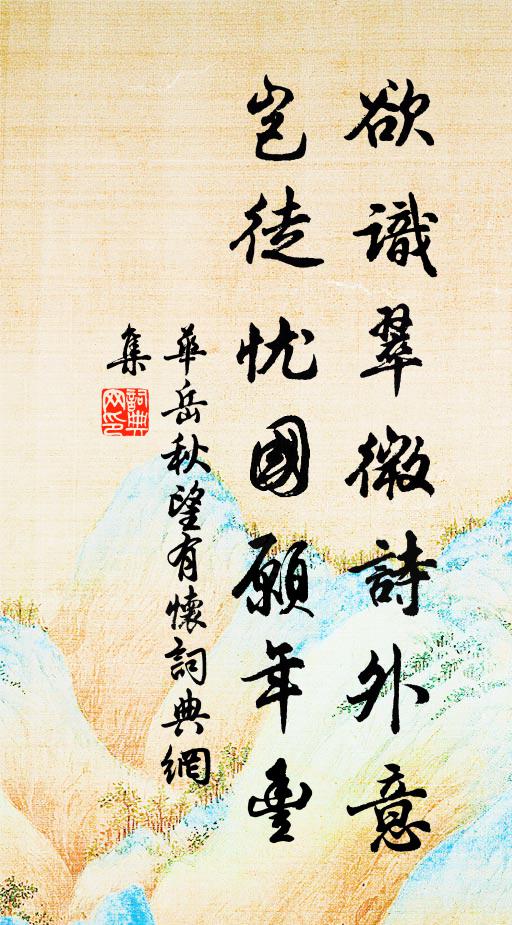 欲識翠微詩外意
豈徒忧國願年豐
華岳秋望有懷詞典網
集
詞典
网印